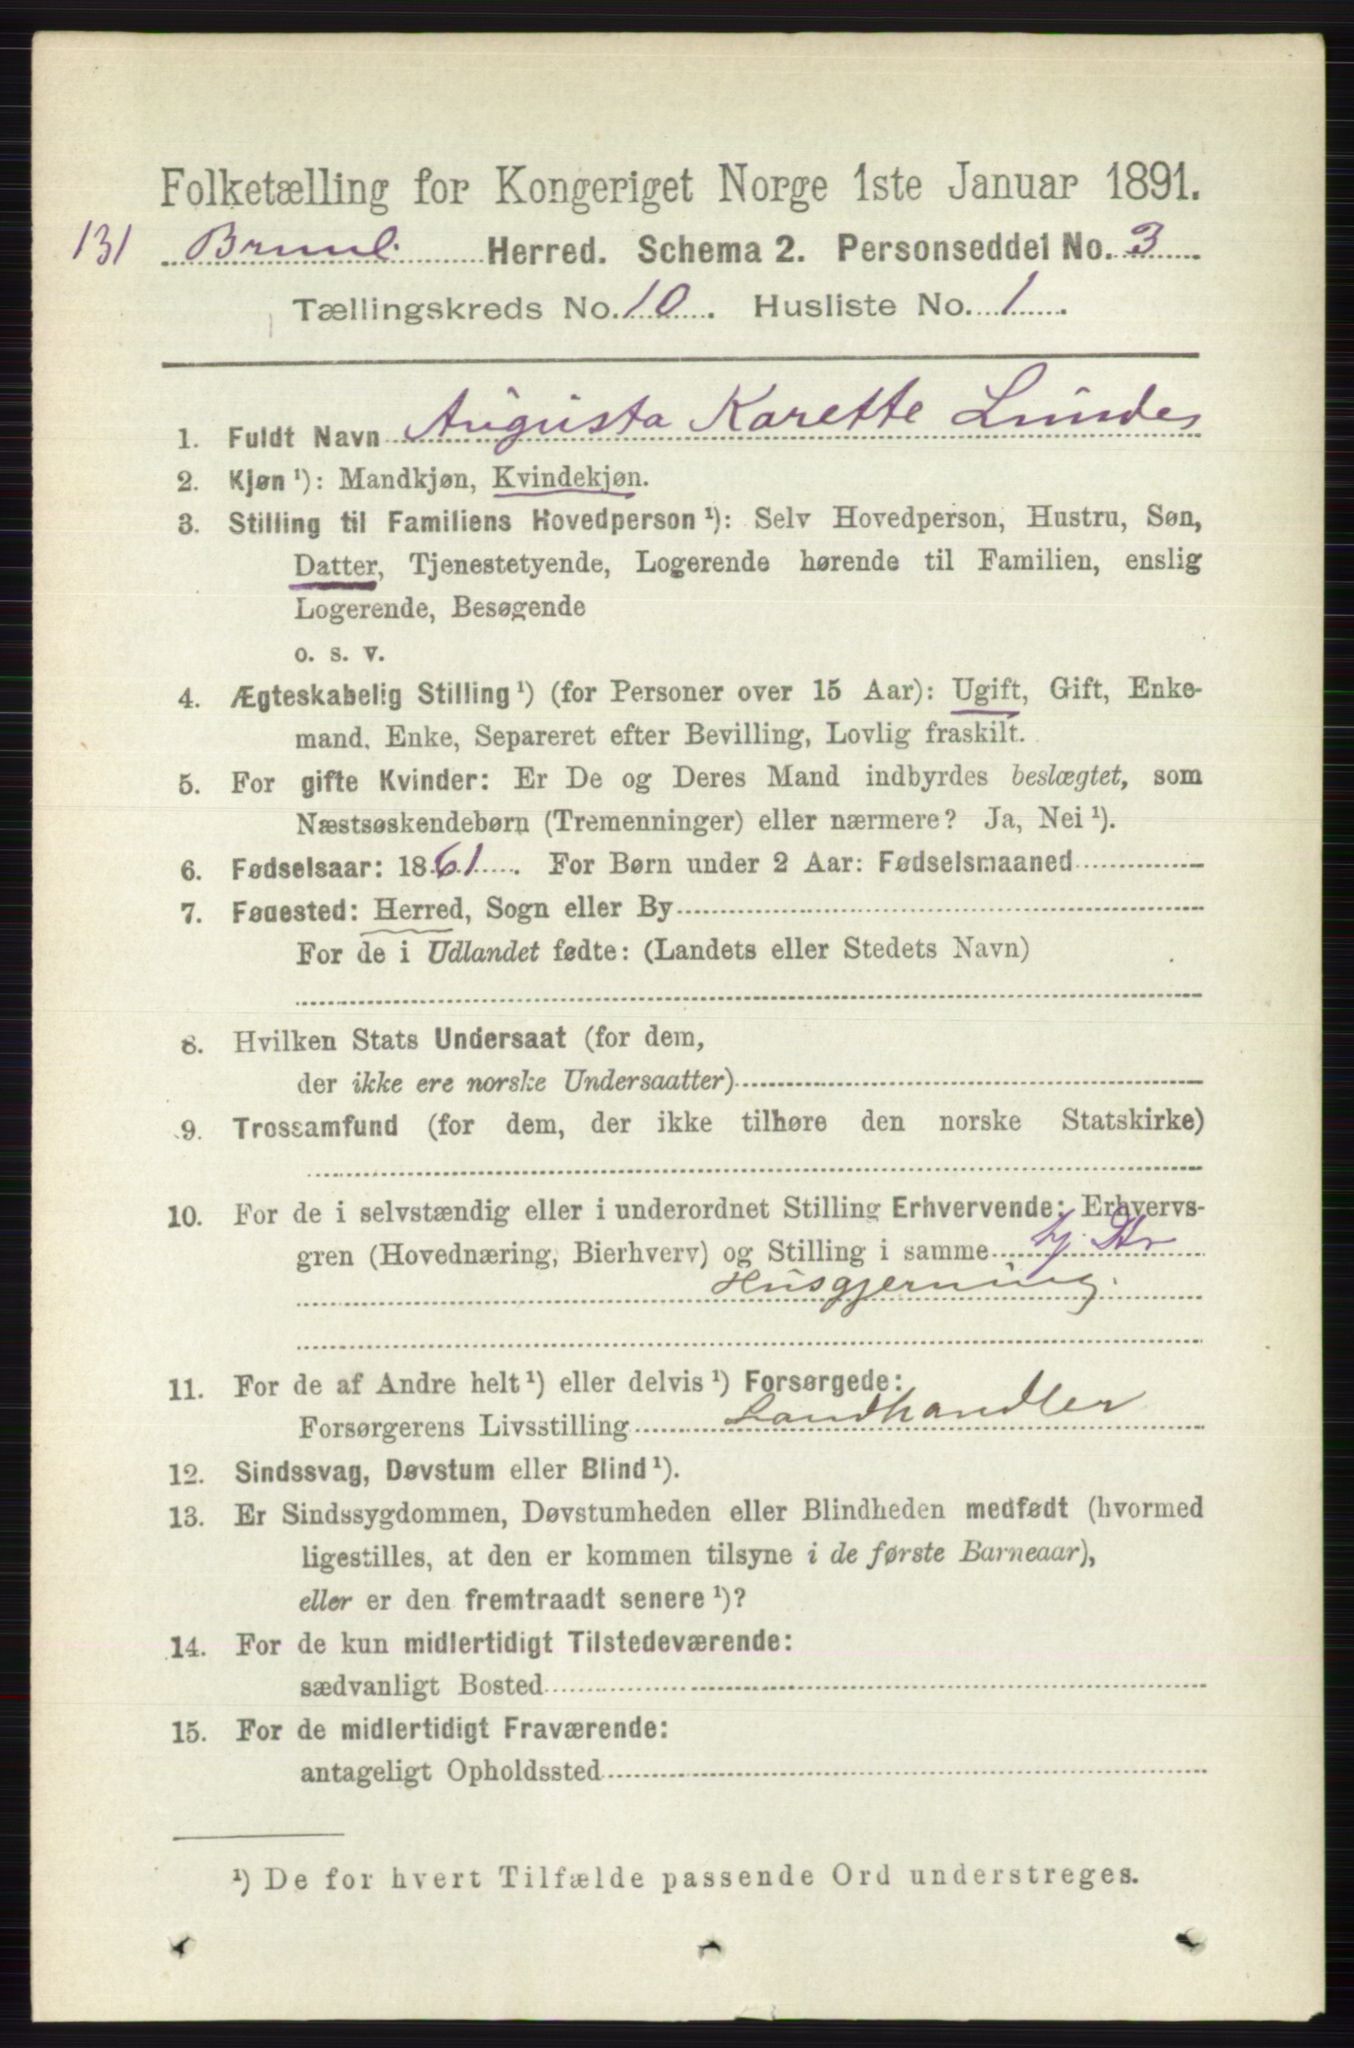 Folketælling for Kongeriget Norge 1ste Januar 1891.
131 Brunl. Herred. Schema 2. Personseddel No. 3
Tællingskreds No. 10. Husliste No. 1.
1. Fuldt Navn Augusta Karette Lunde
2. Kjøn ¹): Mandkjøn, Kvindekjøn.
3. Stilling til Familiens Hovedperson ¹): Selv Hovedperson, Hustru, Søn,
Datter, Tjenestetyende, Logerende hørende til Familien, enslig
Logerende, Besøgende
o. s. v.
4. Ægteskabelig Stilling ¹) (for Personer over 15 Aar): Ugift, Gift, Enke-
mand, Enke, Separeret efter Bevilling, Lovlig fraskilt.
5. For gifte Kvinder: Er De og Deres Mand indbyrdes beslægtet, som
Næstsøskendebørn (Tremenninger) eller nærmere? Ja, Nei ¹).
6. Fødselsaar: 1861. For Børn under 2 Aar: Fødselsmaaned
7. Fødested: Herred, Sogn eller By
For de i Udlandet fødte: (Landets eller Stedets Navn)
8. Hvilken Stats Undersaat (for dem,
der ikke ere norske Undersaatter)
9. Trossamfund (for dem, der ikke tilhøre den norske Statskirke)
10. For de i selvstændig eller i underordnet Stilling Erhvervende: Erhvervs-
gren (Hovednæring, Bierhverv) og Stilling i samme
Husgjerning.
11. For de af Andre helt ¹) eller delvis ¹) Forsørgede:
Forsørgerens Livsstilling Landhandler
12. Sindssvag, Døvstum eller Blind ¹).
13. Er Sindssygdommen, Døvstumheden eller Blindheden medfødt (hvormed
ligestilles, at den er kommen tilsyne i de første Barneaar),
eller er den fremtraadt senere ¹)?
14. For de kun midlertidigt Tilstedeværende:
sædvanligt Bosted
15. For de midlertidigt Fraværende:
antageligt Opholdssted
¹) De for hvert Tilfælde passende Ord understreges.